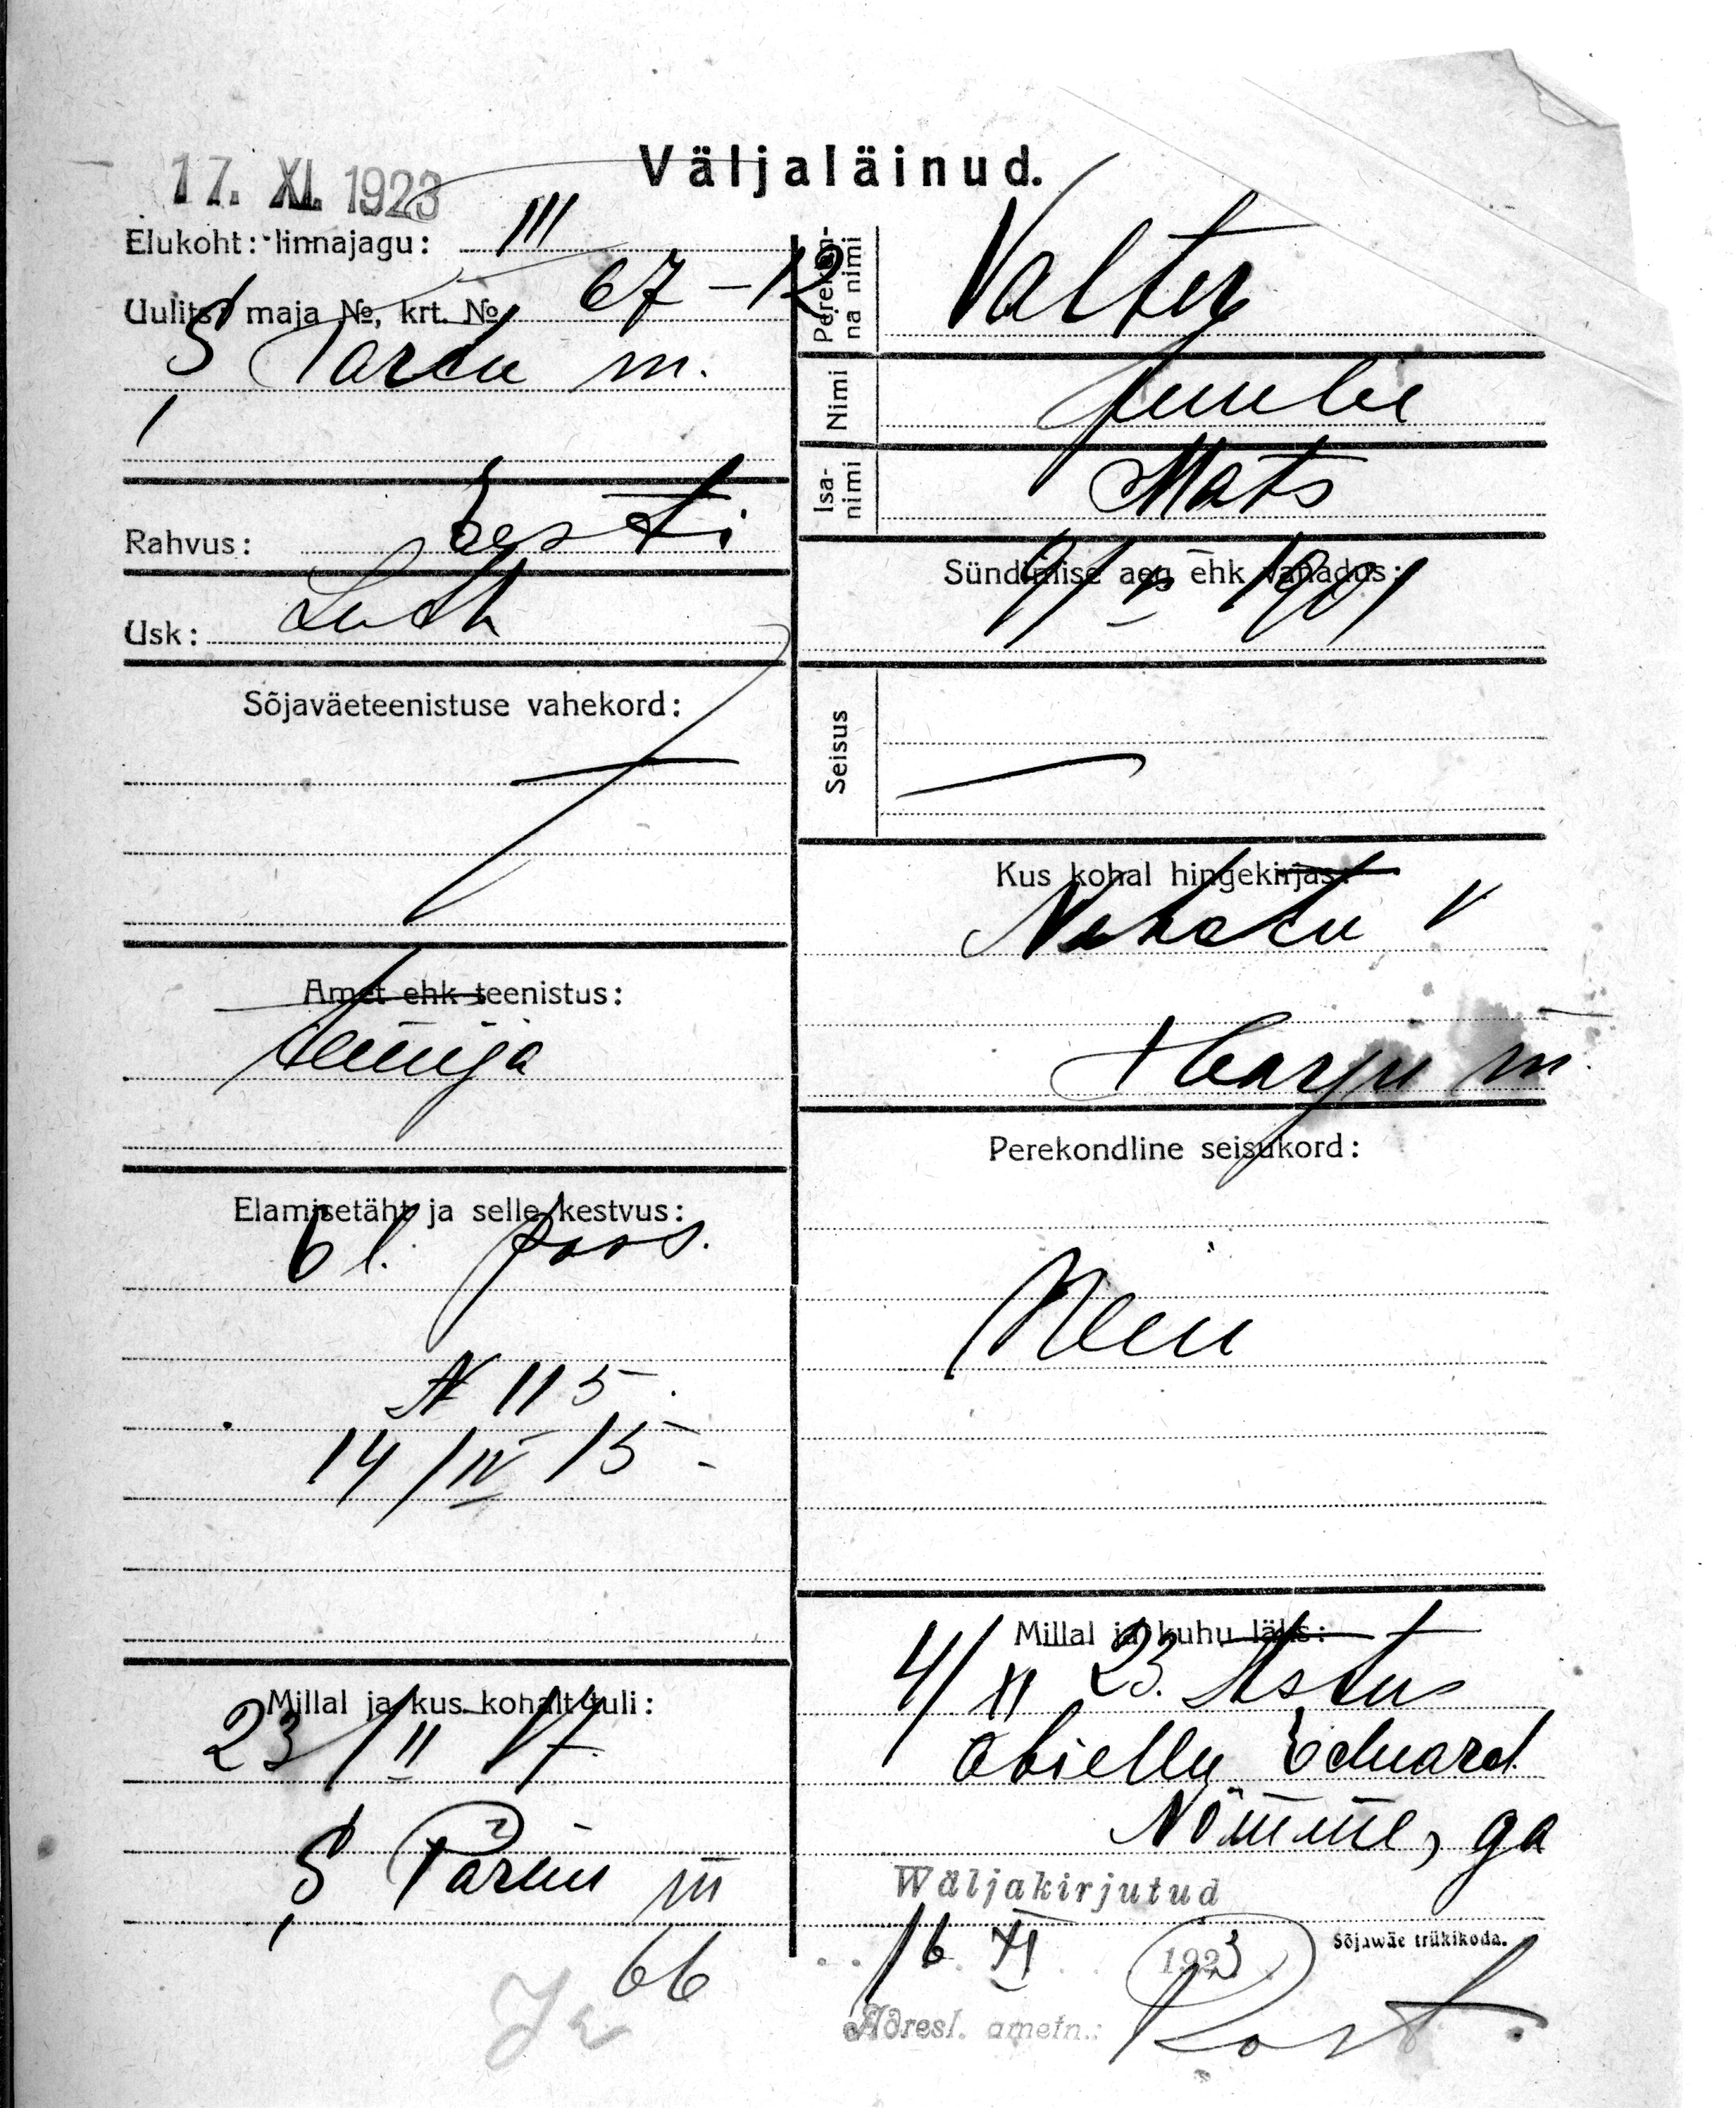 Väljaläinud.
17. XI. 1923
Elukoht: linnajagu: III
Uulits, maja №, krt. № 67-12
S. Tartu m.
Rahvus: Eesti
Usk: Luth
Sõjaväeteenistuse vahekord:
Amet ehk teenistus:
Elamisetäht ja selle kestvus:
6 l. pass.
N 115.
14/IV 15
Millal ja kus kohalt tuli:
23/II 17.
S. Pärnu m
66
Perekonna nimi Valter
Nimi
Isanimi Mats
Sündimise aeg ehk vanadus:
1901
Seisus
Kus kohal hingekirjas:
Nehatu v
Harju m.
Perekondline seisukord:
Millal ja kuhu läks:
4/XI 23. Astus
abiellu Eduard
Nõmme, ga
Wäljakirjutud
16 XI 1923
Sõjawäe trükikoda.
Adresl. ametn.: